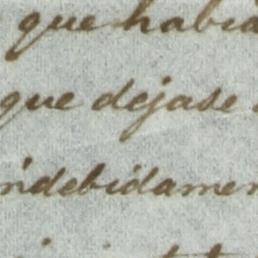 que habia
que dejase
indebidamen